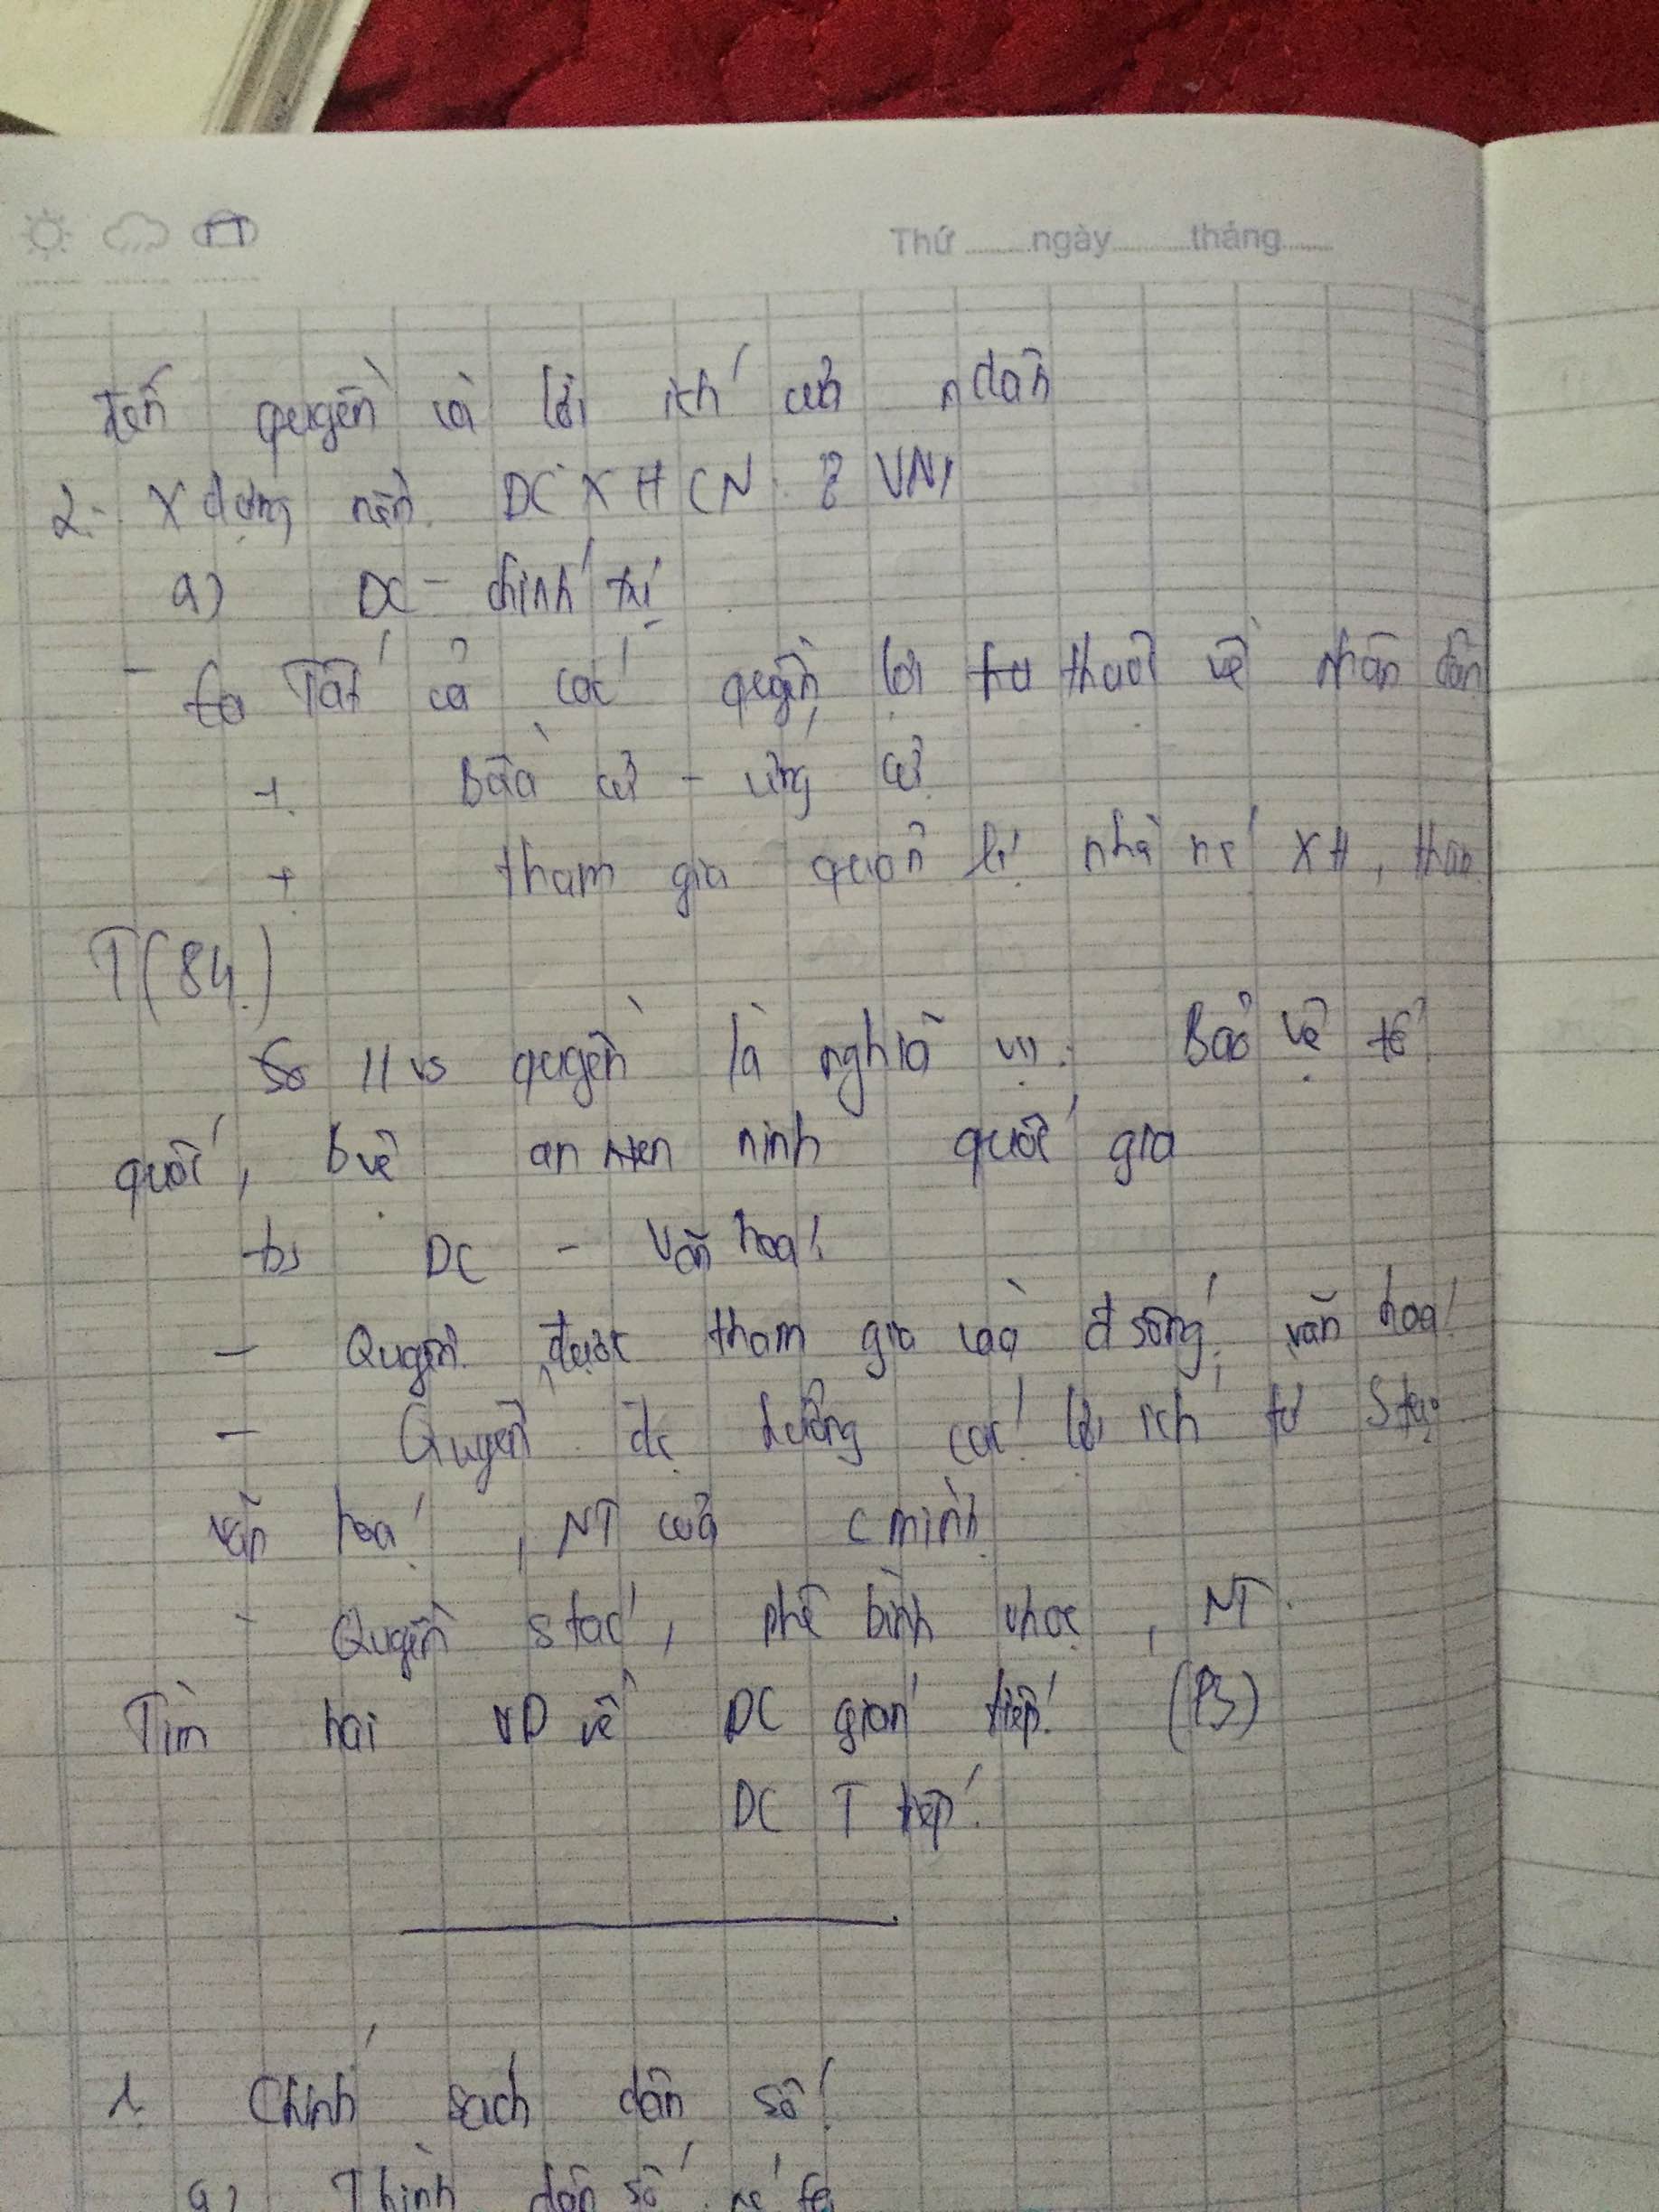 Thứ ngày tháng
đến quyền và lợi ích của ndân
2. Xdựng nền DC XHCN ở VN
a) DC - chính trị
- Tất cả các quyền lợi thuộc về nhân dân
+ Bầu cử - ứng cử
+ tham gia quản lí nhà nc XH,
T(84)
So // vs quyền là nghĩa vụ: Bảo vệ tổ
quốc, bvệ an ninh quốc gia
b) DC - Văn hoá
- Quyền được tham gia vào đ sống văn hoá
- Quyền đc hưởng các lợi ích từ stạo
văn hoá, NT của cmình
- Quyền stác, phê bình vhọc, NT.
Tìm hai VD về DC gián tiếp (P3)
DC T tiếp
1. Chính sách dân số
a) Thình dân số nc ta